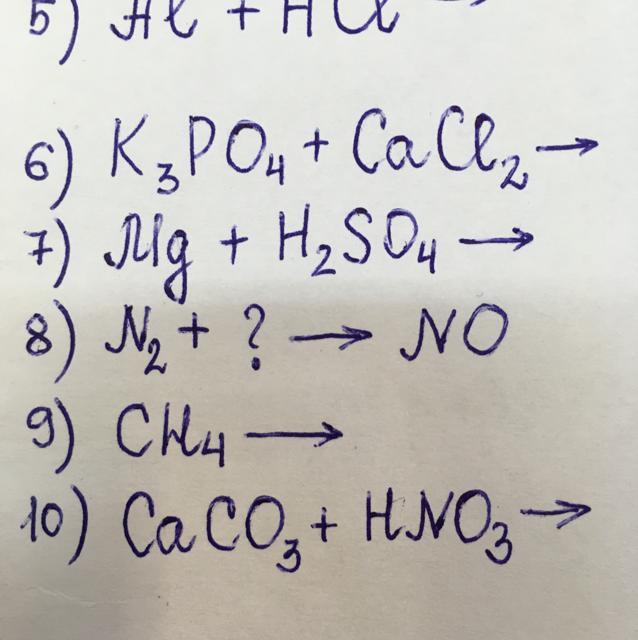 5) Al + HCl →
6) K₃PO₄ + CaCl₂ →
7) Mg + H₂SO₄ →
8) N₂ + ? → NO
9) CH₄ →
10) CaCO₃ + HNO₃ →